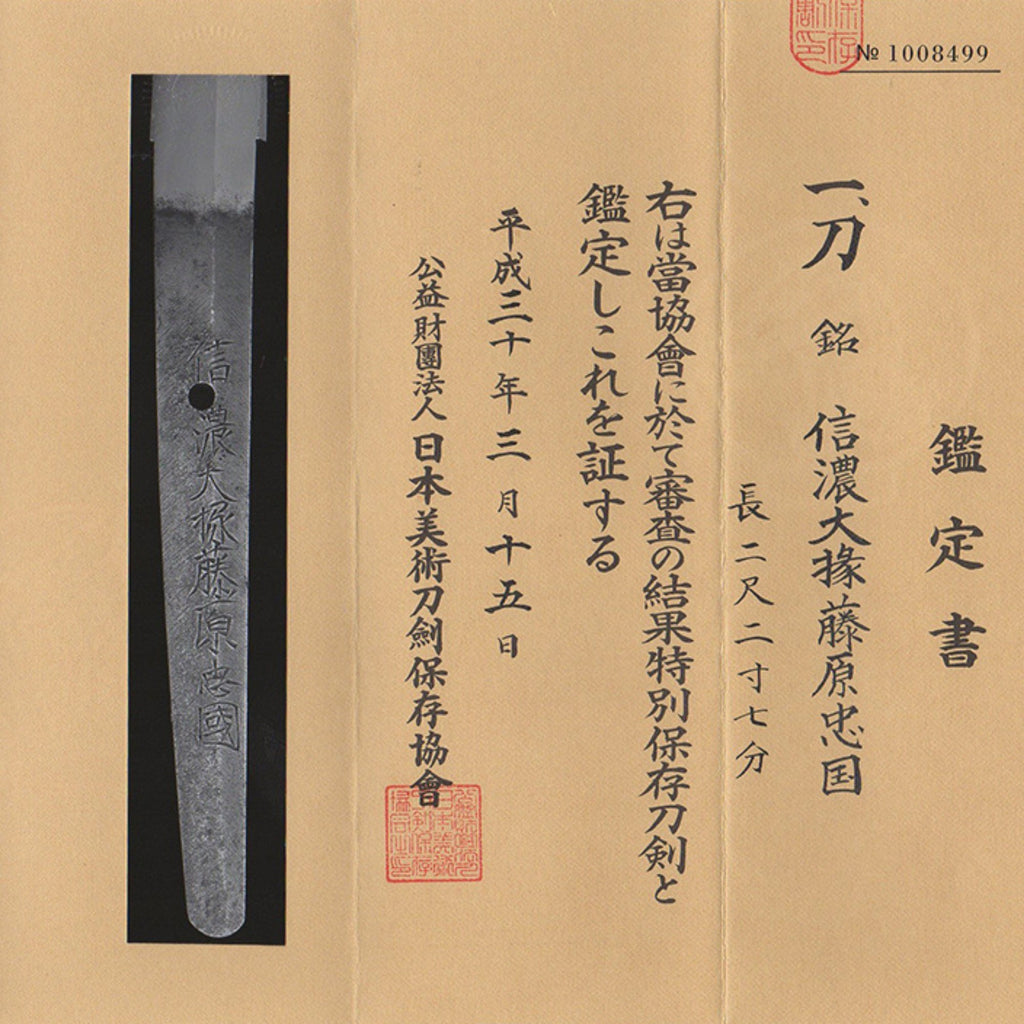 № 1008499
鑑定書
一、刀 銘 信濃大掾藤原忠国
長二尺二寸七分
右は當協會に於て審査の結果特別保存刀剣と
鑑定しこれを証する
平成三十年三月十五日
公益財團法人日本美術刀劍保存協會
信濃大掾藤原忠國